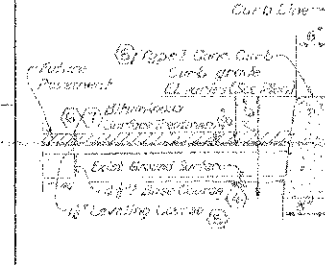 Curb Line
6"
⑤ Type I Conc. Curb
Curb grade
El. varies (See Plan)
Future
Pavement
⑥ ⑦ Bituminous
Surface Treatment
6"
Exist. Ground Surface
Base Course
④
Leveling Course
8"